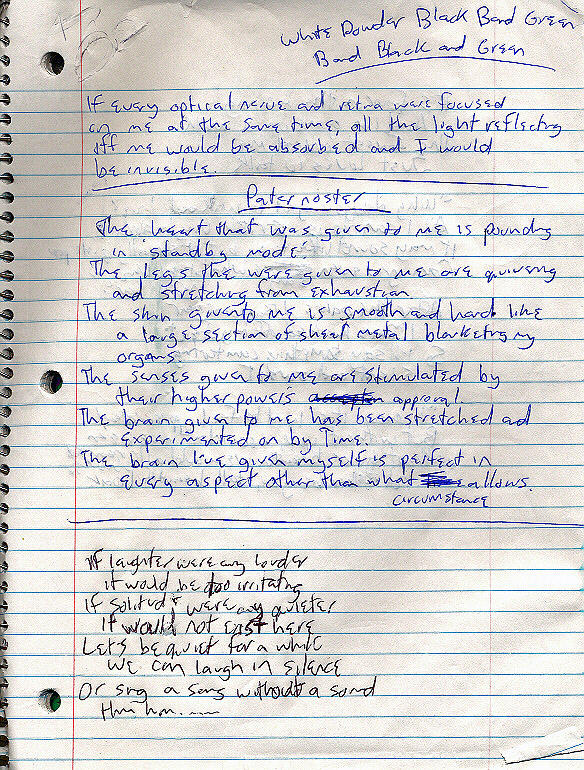 White Powder Black Band Green
Band Black and Green
If every optical nerve and retna were focused
on me at the same time, all the light reflecting
off me would be absorbed and I would
be invisible.
Pater noster
The heart that was given to me is pounding
in "standby mode".
The legs the were given to me are quivering
and stretching from exhaustion.
The skin given to me is smooth and hard like
a large section of sheaf metal blanketing my
organs.
The senses given to me are stimulated by
their higher powers approval.
The brain given to me has been stretched and
experimented on by Time.
The brain I've given myself is perfect in
every aspect other than what allows.
circumstance
If laughter were any louder
it would be too irritating
If solitude were any quieter
it would not exist here
Let's be quiet for a while
we can laugh in silence
Or sing a song without a sound
hm hm.....